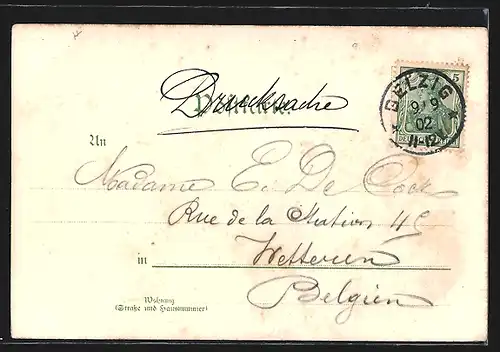 Drucksache
Postkarte.
5
BELZIG
9 9
02
11-12
An
Madame E. De Cock
Rue de la Station 45
in Wetteren
Belgien
Wohnung
(Straße und Hausnummer)